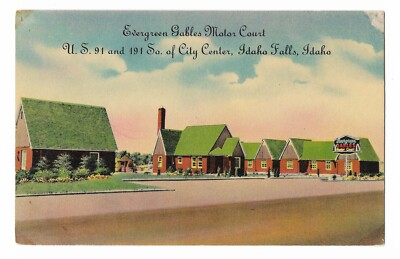 Evergreen Gables Motor Court
U. S. 91 and 191 So. of City Center, Idaho Falls, Idaho